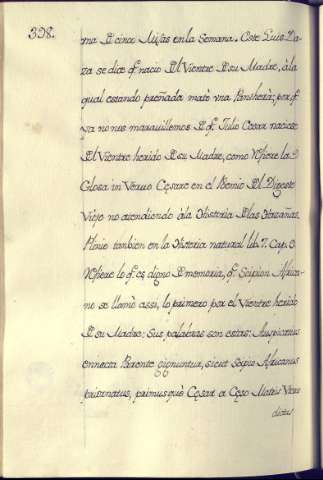 398.
ma D cinco Misas en la Semana. Este Luis Da-
za se dice q. nacio Dl Vientre D su Madre, àla
qual estando preñada mató vna Panthera; por q.
ya no nos maravillemos D q. Julio Cesar naciese
Dl Vientre herido D su Madre, como refiere la
Glosa in Veruo Cęsare en el Proemio Dl Digesto
Viejo no atendiendo àla Historia Dlas Hazañas.
Plinio tambien en la Historia natural lib. 7. Cap. 9.
Refiere lo q. es digno D memoria, q. Scipion Africa-
no se llamó assi, lo primero por el Vientre herido
D su Madre; Sus palabras son estas: Auspicatius
ennecta Parente gignuntur, sicut Scipio Africanus
prior natus, primusque Cęsar a Cęso Matris Vtero
dictus